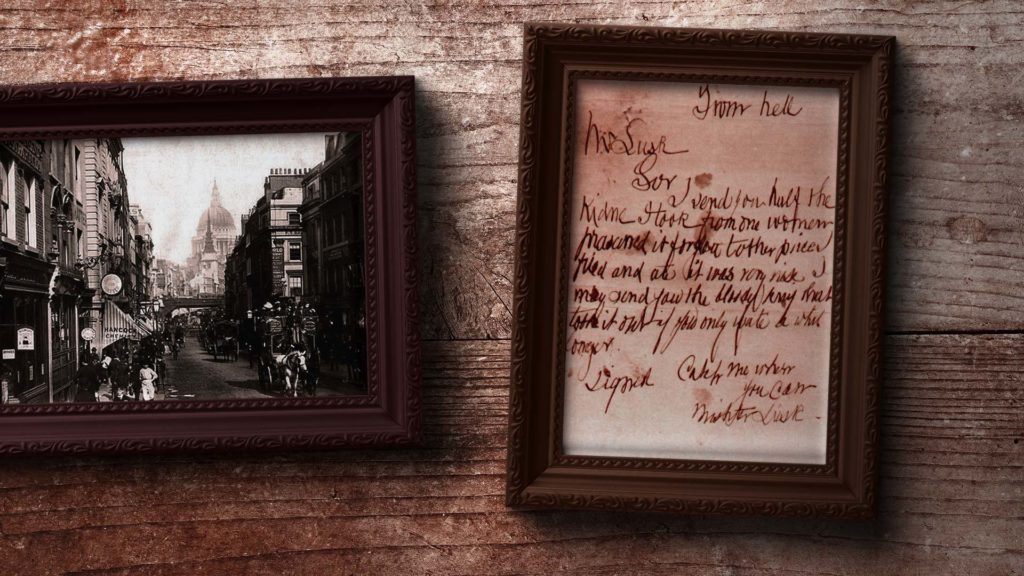 HANCOCK
From hell
Mr Lusk
Sor
I send you half the
Kidne I took from one women
prasarved it for you tother piece I
fried and ate it was very nise I
may send you the bloody knif that
took it out if you only wate a whil
longer
Signed Catch me when
you can
Mishter Lusk.